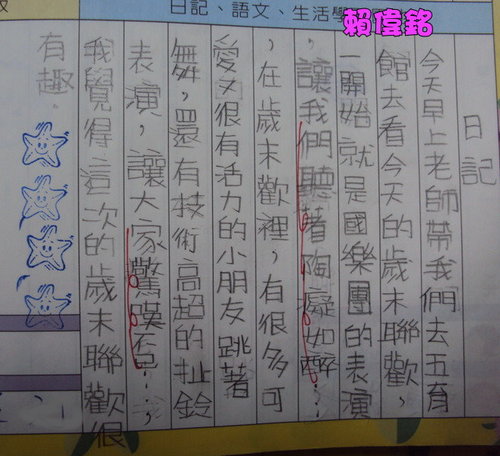 日記、語文、生活學
賴偉銘
日記
今天早上老師帶我們去五育
館去看今天的歲末聯歡，
一開始就是國樂團的表演
，讓我們聽著陶癡如醉
，在歲末歡裡，有很多可
愛又很有活力的小朋友跳著
舞，還有技術高超的扯鈴
表演，讓大家驚嘆不已…；
我覺得這次的歲末聯歡很
有趣。